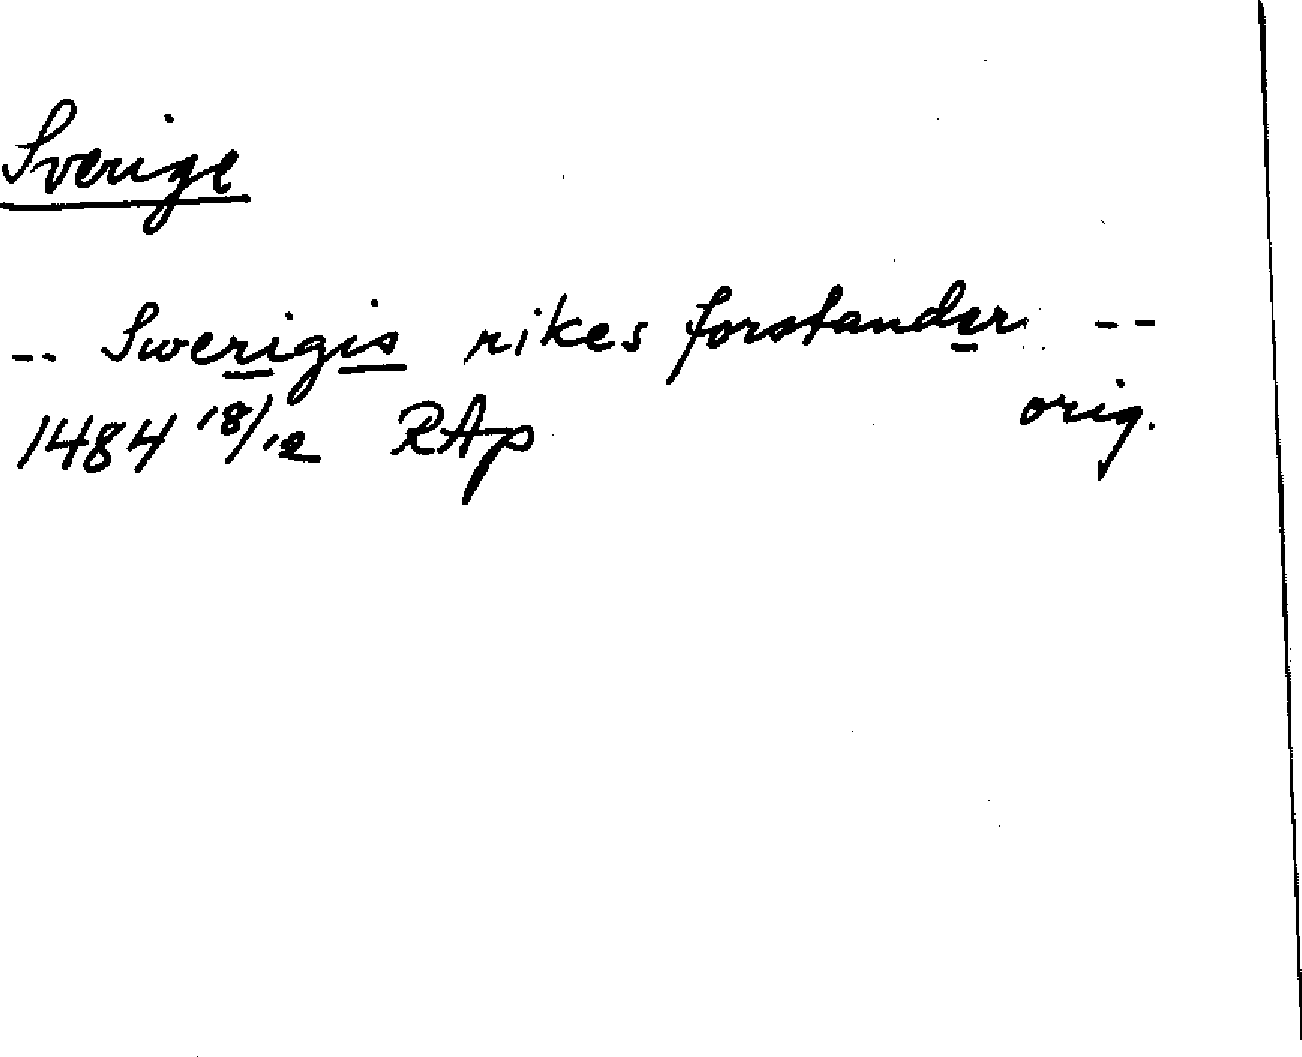 Sverige
-- Swerigis rikes forstander --
1484 18/12 RAp orig.